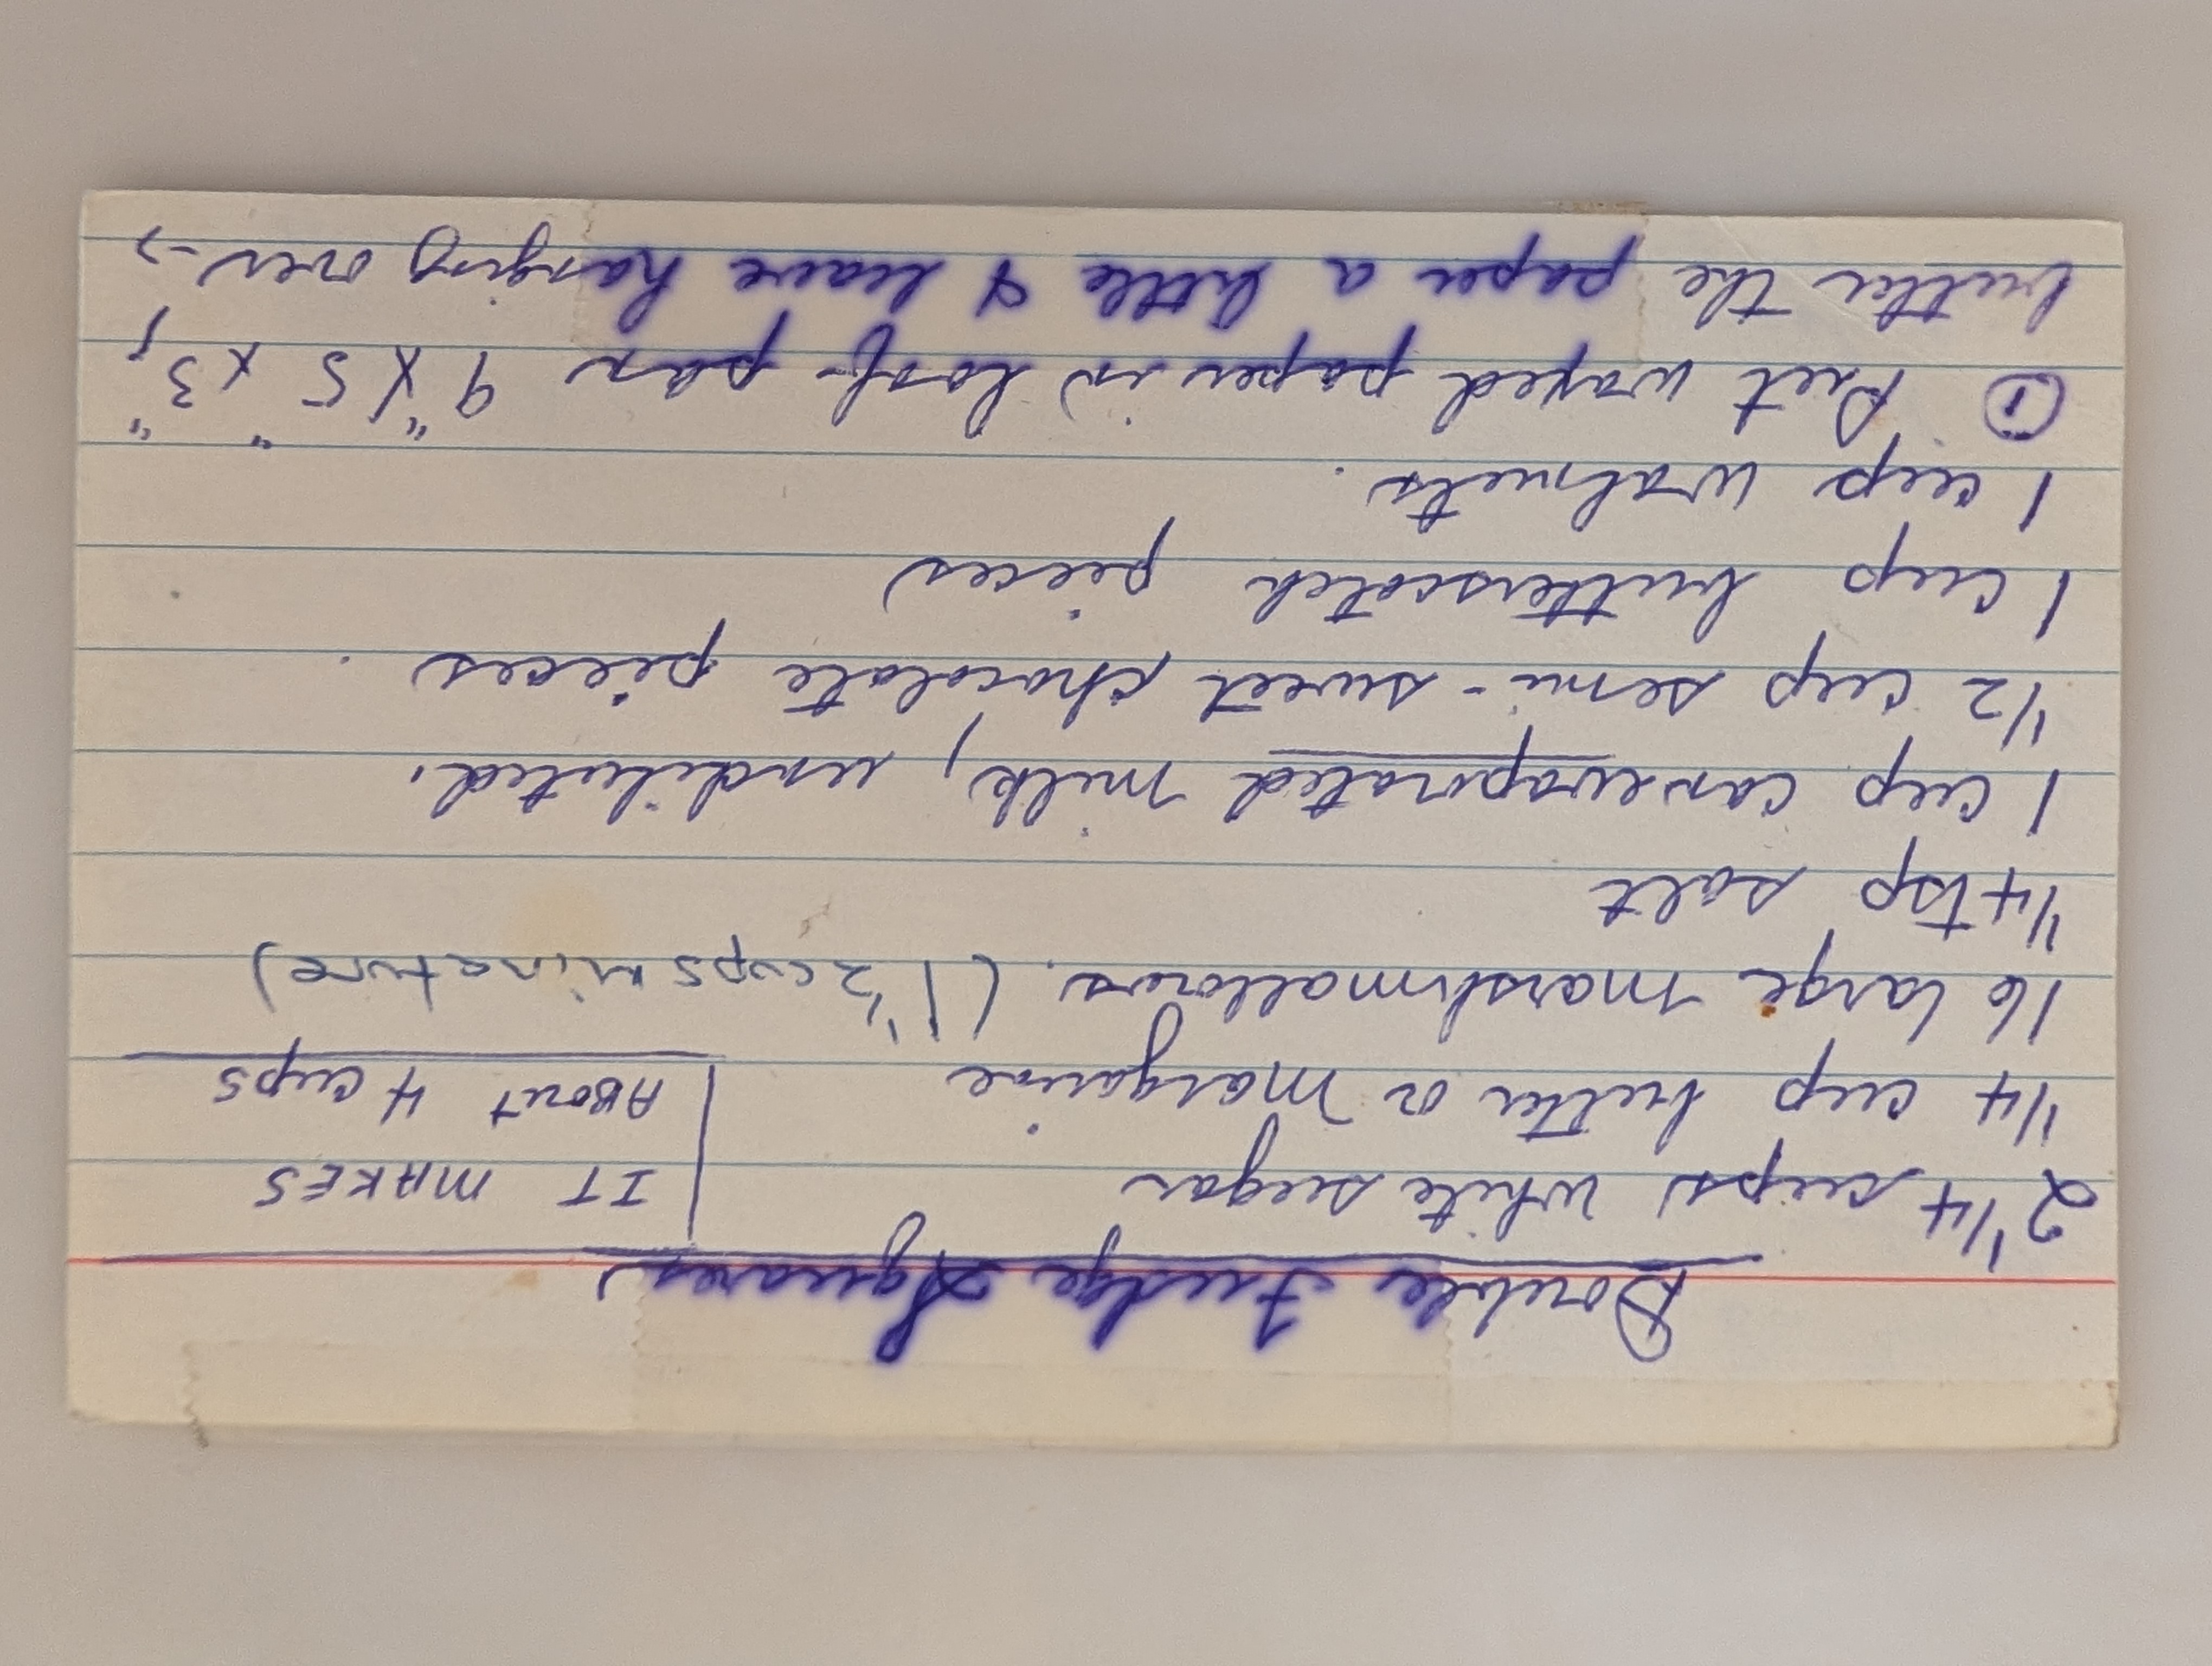 Double Fudge Squares
2 1/4 cups white sugar | IT MAKES
1/4 cup butter or margarine | ABOUT 4 cups
16 large marshmallows. (1 1/2 cups minature)
1/4 tsp salt
1 cup can evaporated milk, undiluted.
1/2 cup semi-sweet chocolate pieces.
1 cup butterscotch pieces
1 cup walnuts.
① Put waxed paper in loaf-pan 9" x 5" x 3",
butter the paper a little & leave hanging over →